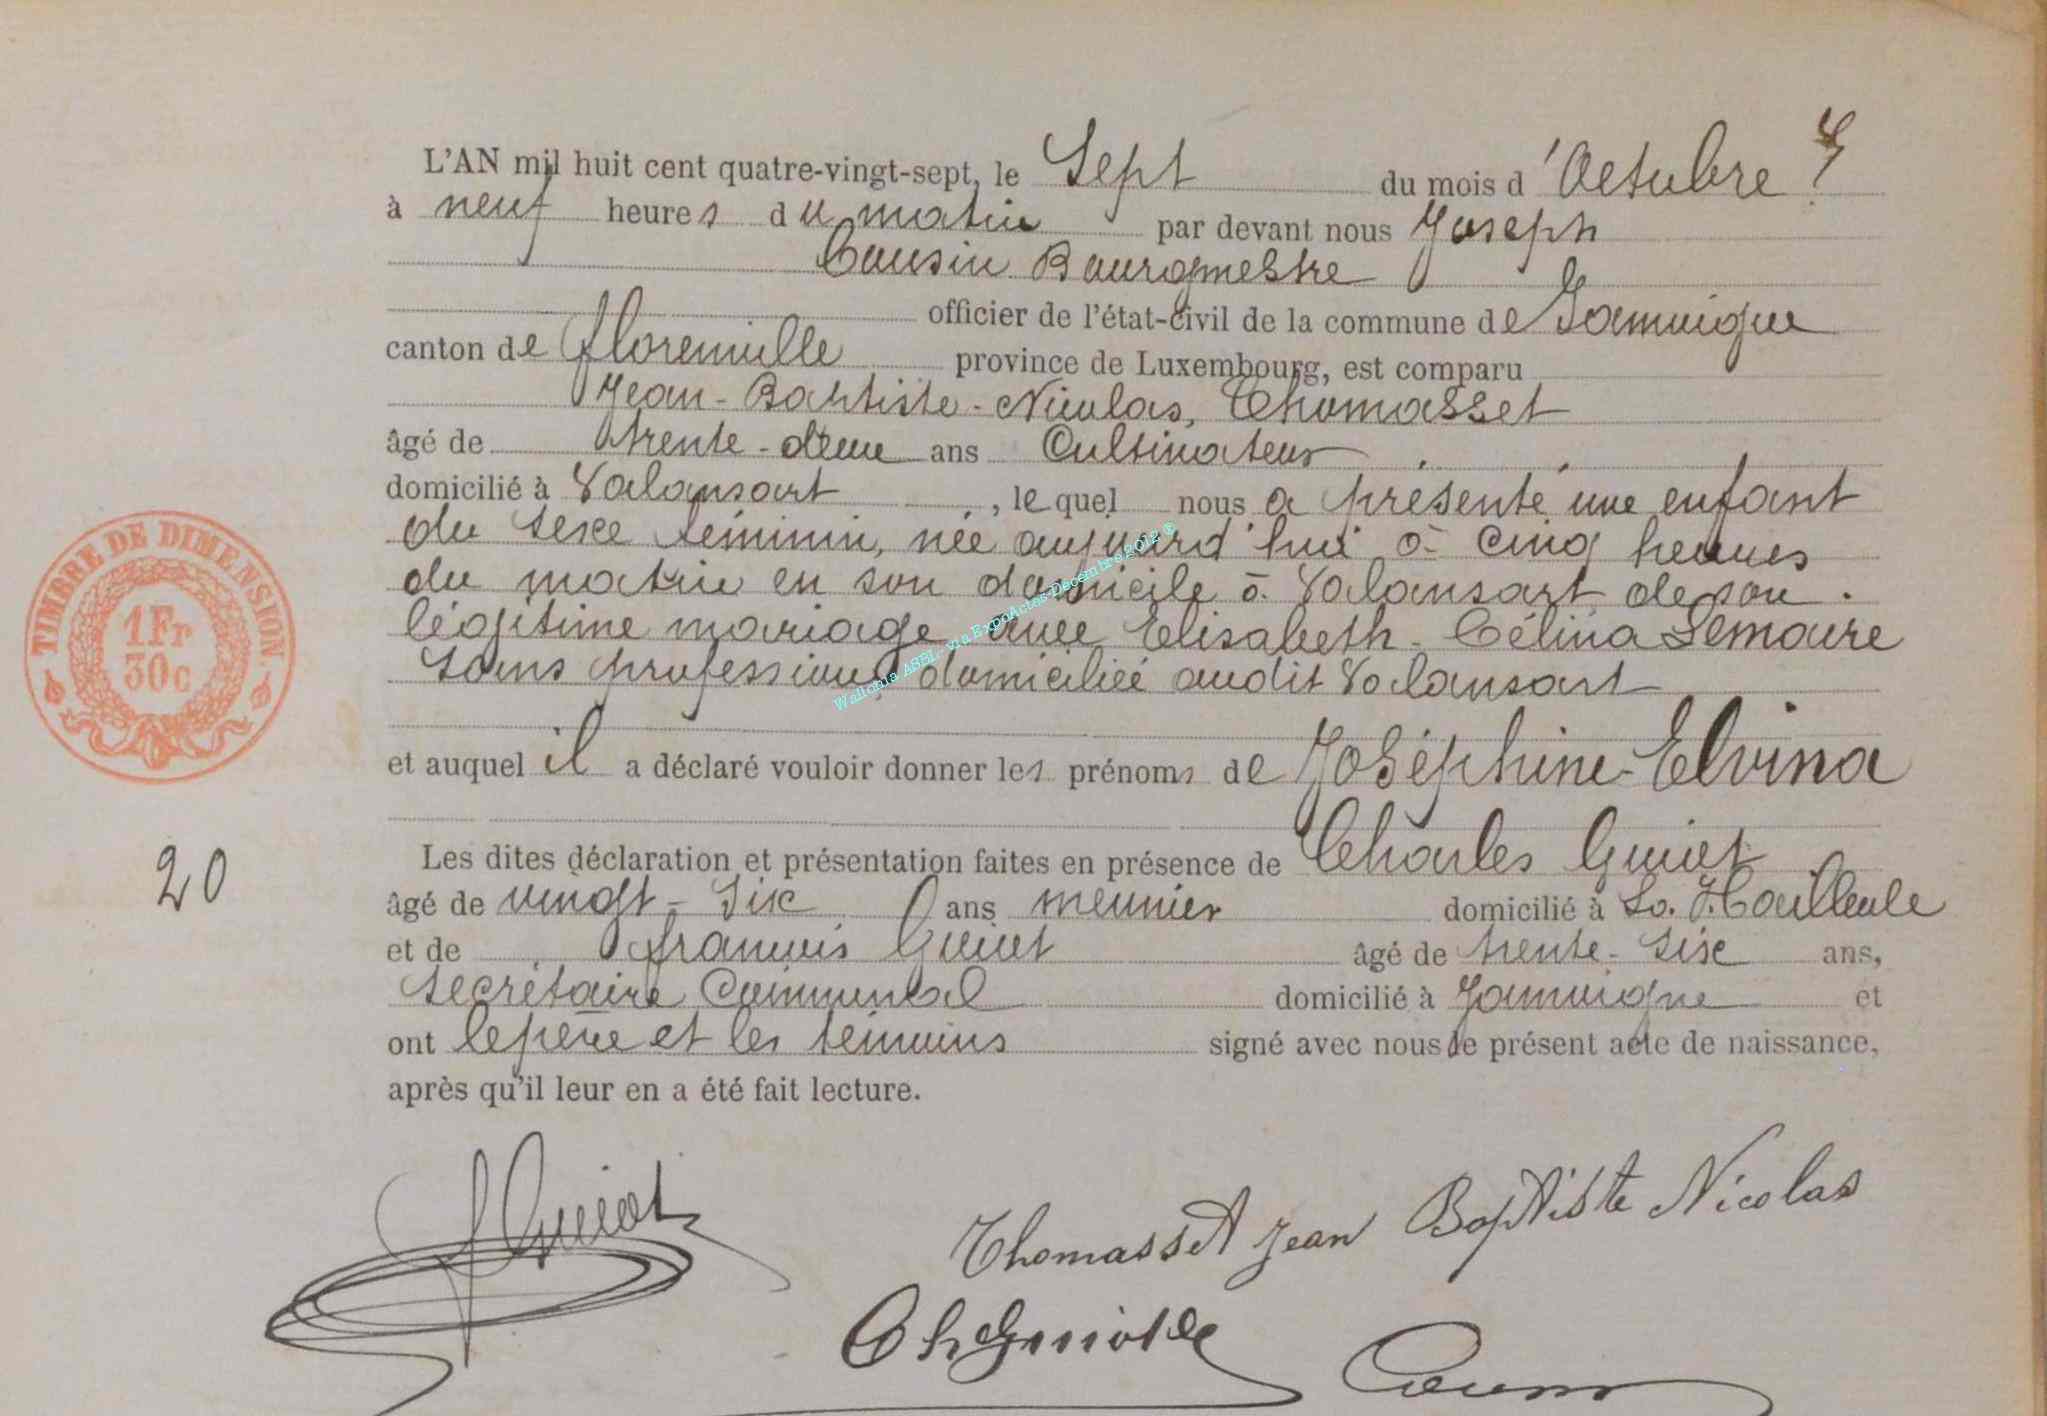 L'AN mil huit cent quatre-vingt-sept, le Sept du mois d'Octobre
à neuf heures du matin par devant nous Joseph
Cousin Bourgmestre
officier de l'état-civil de la commune de Jamoigne
canton de florenville province de Luxembourg, est comparu
Jean-Baptiste-Nicolas, Thomasset
âgé de trente-deux ans Cultivateur
domicilié à Valansart, lequel nous a présenté une enfant
du sexe féminin, née aujourd'hui à cinq heures
du matin en son domicile à Valansart, de son
légitime mariage avec Elisabeth-Célina Lemaire
sans profession domiciliée audit Valansart
et auquel il a déclaré vouloir donner les prénoms de Joséphine-Elvina
Les dites déclaration et présentation faites en présence de Charles Guiot
âgé de vingt-six ans meunier domicilié à La Hailleule
et de francois Guiot âgé de trente-six ans,
secrétaire Communal domicilié à Jamoigne et
ont le père et les témoins signé avec nous le présent acte de naissance,
après qu'il leur en a été fait lecture.
TIMBRE DE DIMENSION.
1Fr
30c
20
Wallonia ASBL - via ExpoActes-Décembre 2012 ®
f Guiot
Thomasset Jean Baptiste Nicolas
Ch Guiot
Cousin